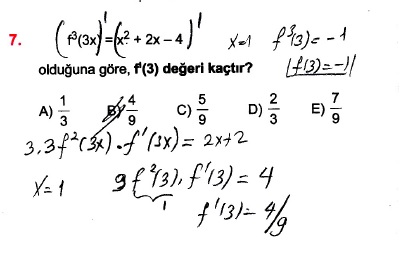 7. (f³(3x))' = (x² + 2x – 4)' x=1 f³(3) = -1
olduğuna göre, f'(3) değeri kaçtır? f(3) = -1
A) 1/3 B) 4/9 C) 5/9 D) 2/3 E) 7/9
3.3f²(3x).f'(3x) = 2x+2
x=1 9f²(3).f'(3) = 4
1
f'(3) = 4/9